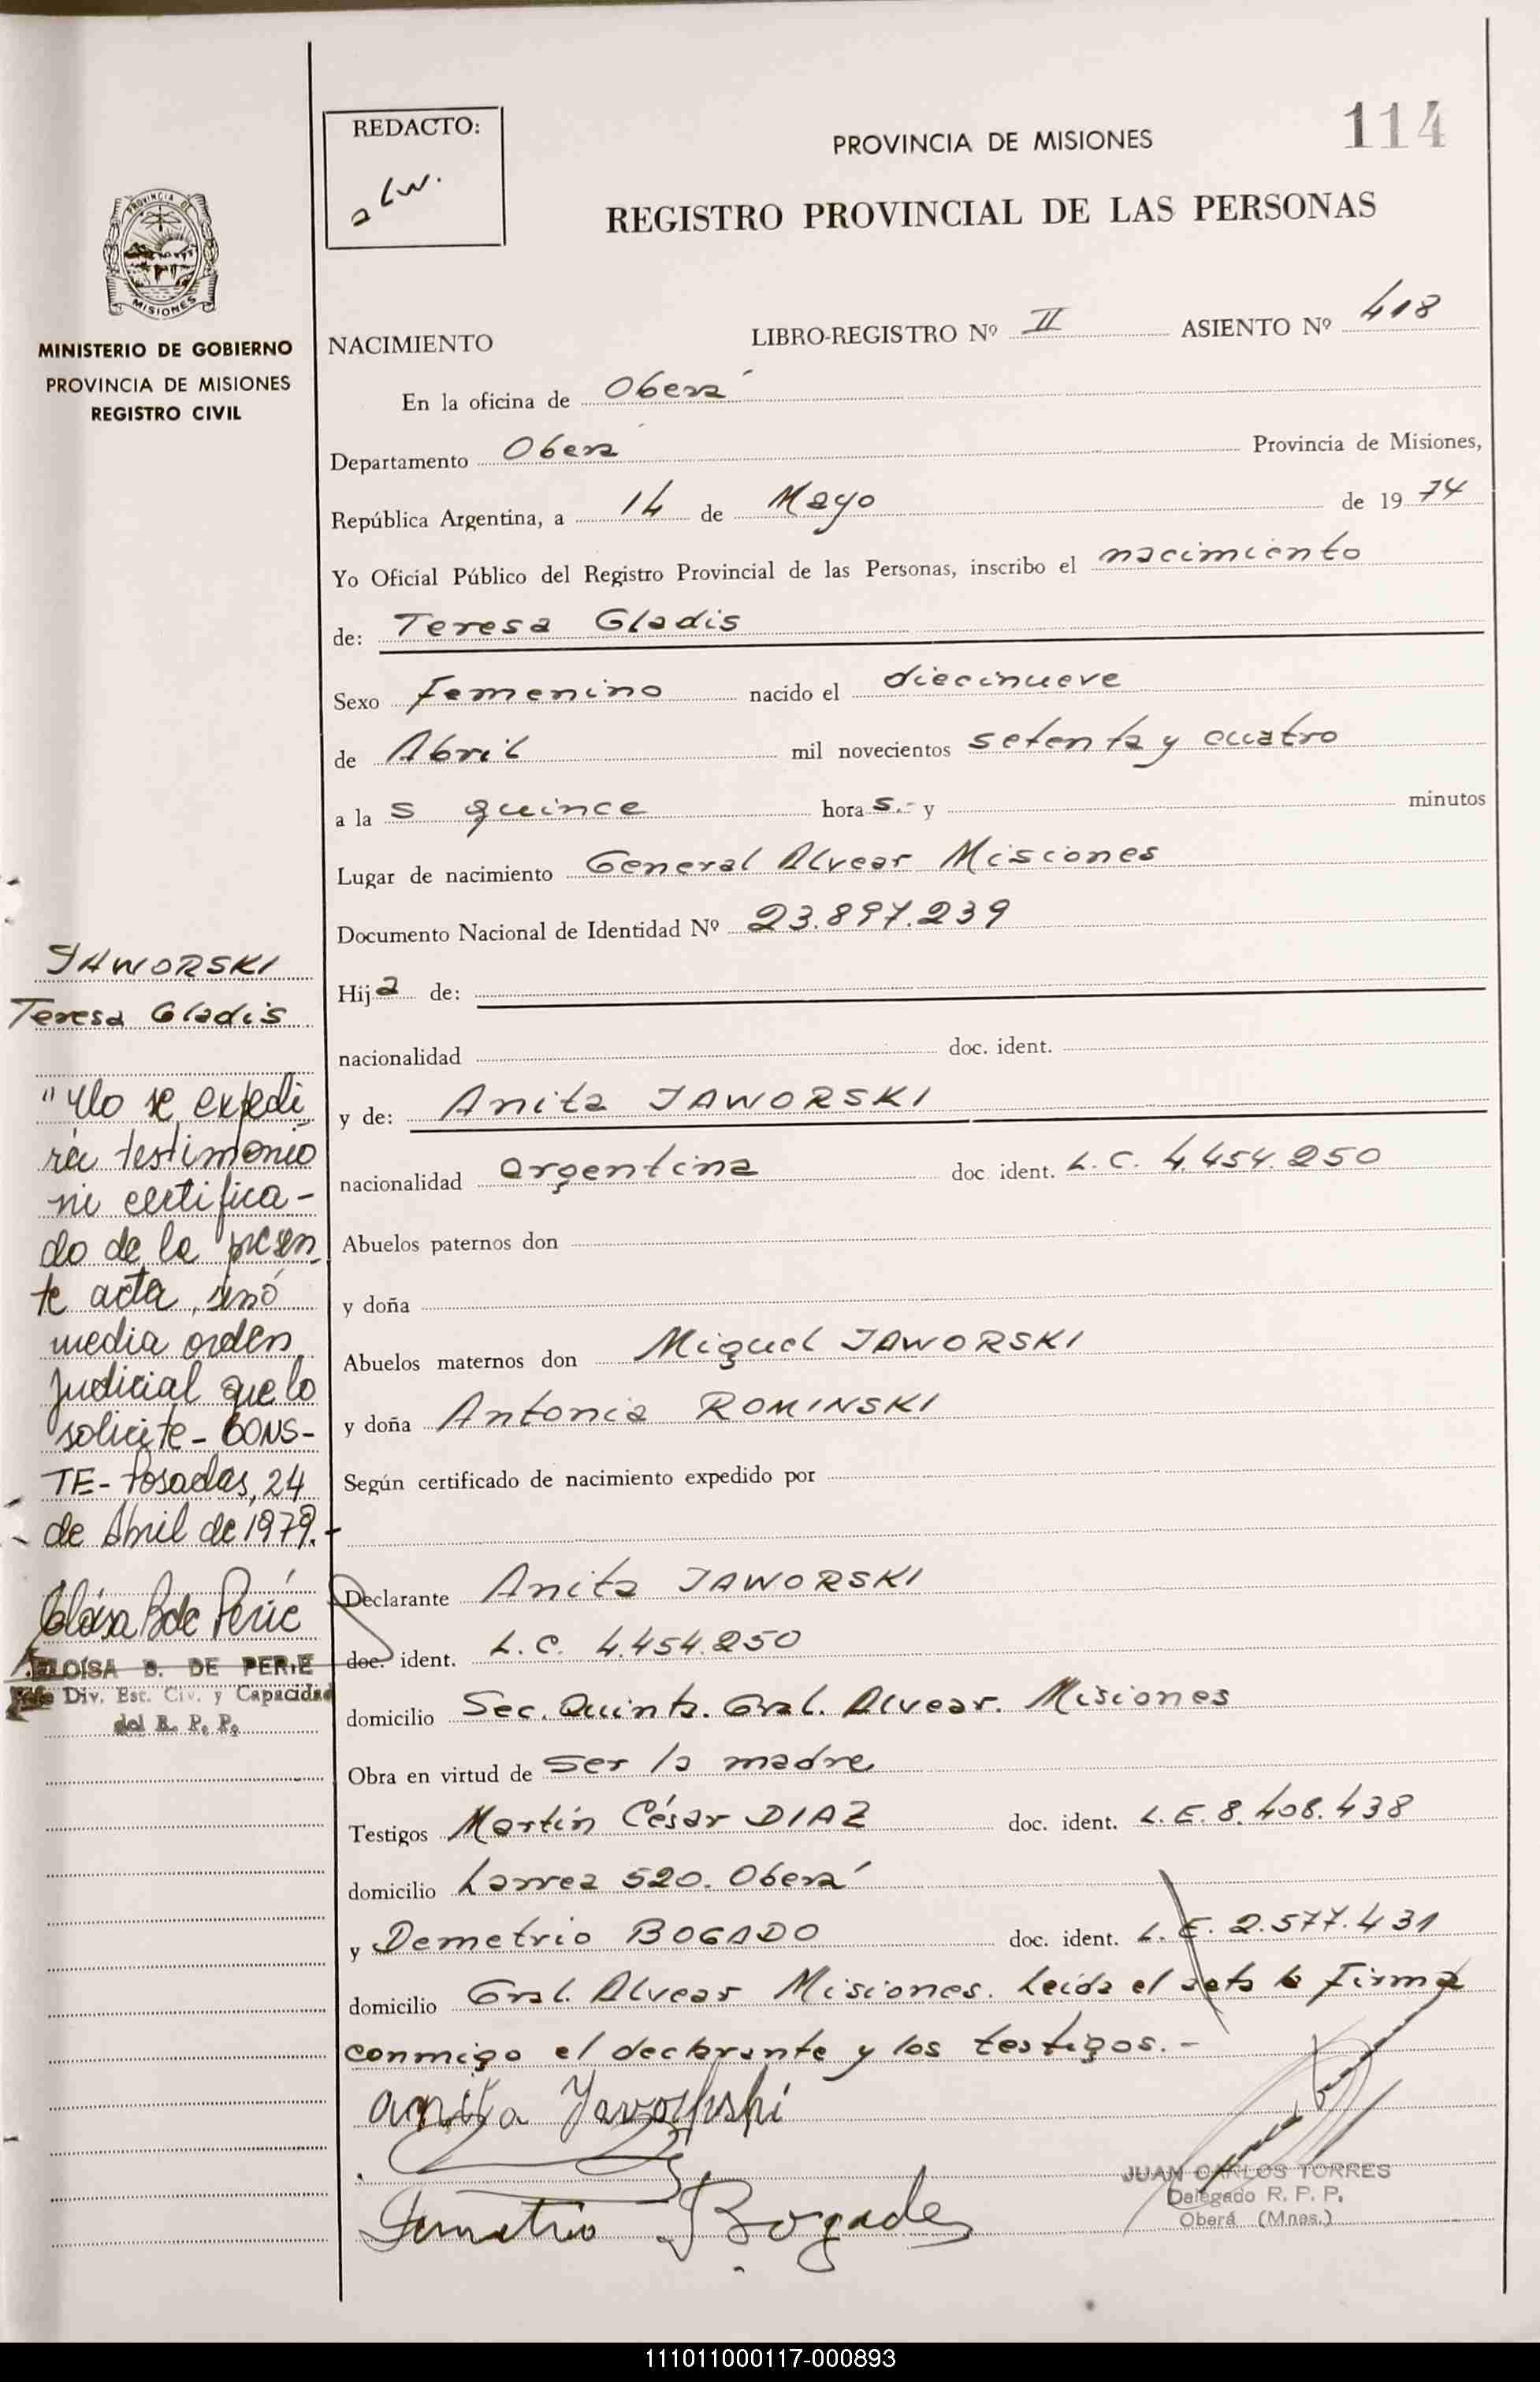 REDACTO:
PROVINCIA DE MISIONES
114
REGISTRO PROVINCIAL DE LAS PERSONAS
PROVINCIA DE
MISIONES
MINISTERIO DE GOBIERNO
PROVINCIA DE MISIONES
REGISTRO CIVIL
NACIMIENTO LIBRO-REGISTRO Nº II ASIENTO Nº 418
En la oficina de Oberá
Departamento Oberá Provincia de Misiones,
República Argentina, a 14 de Mayo de 1974
Yo Oficial Público del Registro Provincial de las Personas, inscribo el nacimiento
de: Teresa Gladis
Sexo Femenino nacido el diecinueve
de Abril mil novecientos setenta y cuatro
a la s quince hora s.- y minutos
Lugar de nacimiento General Alvear Misiones
Documento Nacional de Identidad Nº 23.897.239
Hija de:
nacionalidad doc. ident.
y de: Anita JAWORSKI
nacionalidad argentina doc. ident. L. C. 4.454.250
Abuelos paternos don
y doña
Abuelos maternos don Miguel JAWORSKI
y doña Antonia ROMINSKI
Según certificado de nacimiento expedido por
Declarante Anita JAWORSKI
doc. ident. L. C. 4.454.250
domicilio Sec. Quinta. Gral. Alvear. Misiones
Obra en virtud de ser la madre
Testigos Martín César DIAZ doc. ident. L. E. 8.408.438
domicilio Larrea 520. Oberá
y Demetrio BOGADO doc. ident. L. E. 2.577.431
domicilio Gral. Alvear Misiones. Leída el acta la Firma
conmigo el declarante y los testigos.-
Demetrio Bogado
JUAN CARLOS TORRES
Delegado R. P. P.
Oberá (Mnes.)
JAWORSKI
Teresa Gladis
"No se expedi
rá testimonio
ni certifica-
do de la presen
te acta, sinó
media orden
judicial que lo
solicite- CONS-
TE- Posadas, 24
de Abril de 1979.-
Eloísa B de Perié
ELOISA B. DE PERIE
Jefe Div. Est. Civ. y Capacidad
del R. P. P.
111011000117-000893